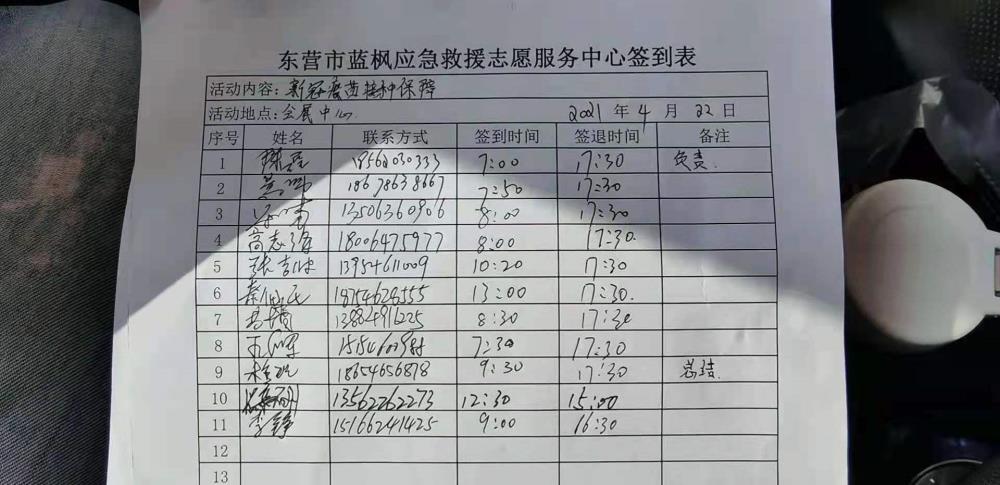 东营市蓝枫应急救援志愿服务中心签到表
活动内容: 新冠疫苗接种保障
活动地点: 会展中心 2021 年 4 月 22 日
序号 姓名 联系方式 签到时间 签退时间 备注
1 18562030333 7:00 17:30 负责
2 18678638667 7:50 17:30
3 13506360906 8:00 17:30
4 高志海 18006475977 8:00 17:30
5 13954611009 10:20 17:30
6 18754628555 13:00 17:30
7 13884916225 8:30 17:30
8 7:30 17:30
9 18654656878 9:30 17:30 总结
10 13562262273 12:30 15:00
11 李静 15166241425 9:00 16:30
12
13